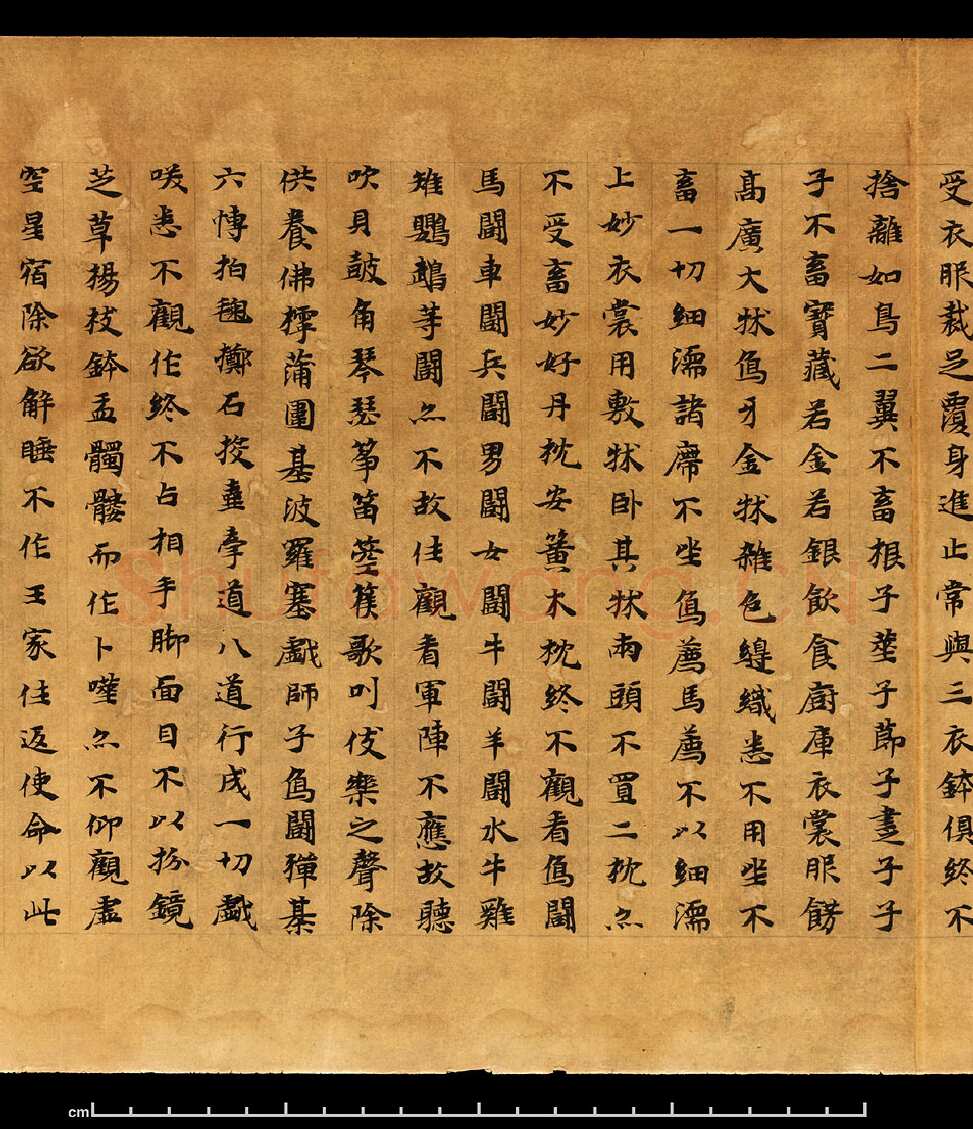 受衣服裁足覆身進止常與三衣鉢俱終不
捨離如鳥二翼不畜根子莖子節子子子
子不畜寶藏若金若銀飲食厨庫衣裳服餝
高廣大牀鳥牙金牀雜色縷織悉不用坐不
畜一切細濡諸席不坐鳥薦馬薦不以細濡
上妙衣裳用敷牀卧其牀兩頭不置二枕亦
不受畜妙好丹枕安簧木枕終不觀看鳥鬪
馬鬪車鬪兵鬪男鬪女鬪牛鬪羊鬪水牛雞
雉鸚鵡等鬪亦不故住觀看軍陣不應故聽
吹貝皷角琴瑟筝笛箜篌歌叫伎樂之聲除
供養佛摴蒲圍基波羅塞戲師子鳥鬪彈基
六愽拍毱擲石投壺牽道八道行成一切戲
咲悉不觀作終不占相手脚面目不以抓鏡
芝草楊枝鉢盂髑髏而作卜噬亦不仰觀虛
空星宿除欲解睡不作王家住返使命以此
Shufawang.CN
cm